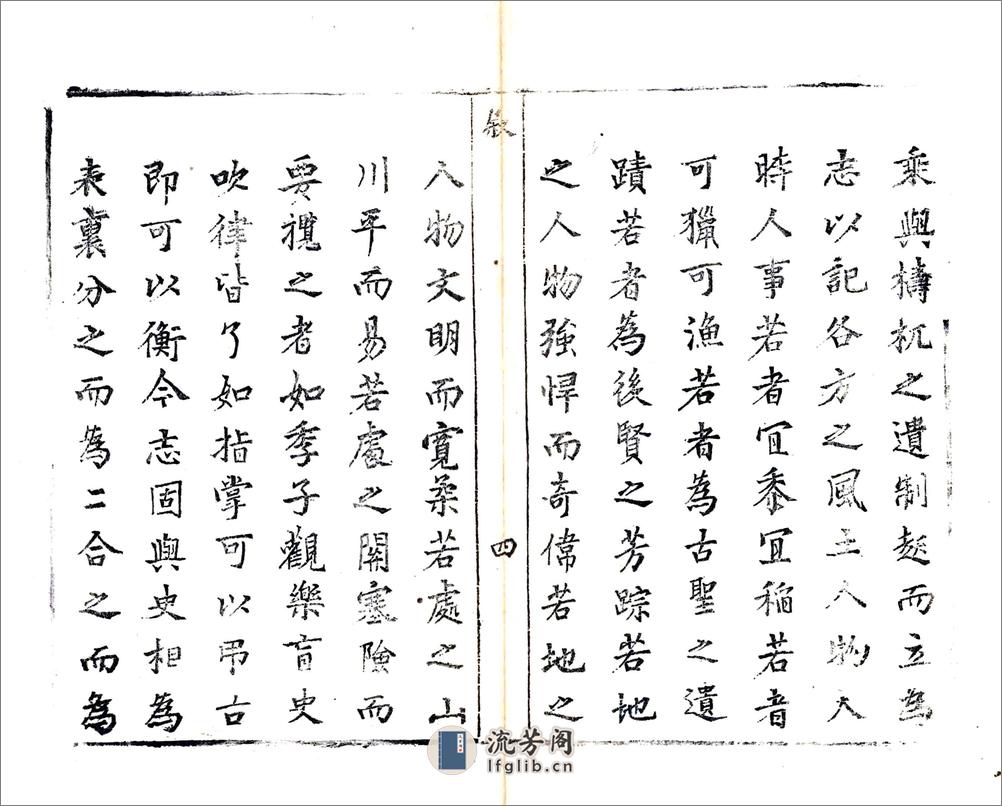 乘與檮杌之遺制起而立為
志以記各方之風土人物天
時人事若者宜黍宜稲若者
可獵可漁若者為古聖之遺
蹟若者為後賢之芳踪若地
之人物強悍而奇偉若地之
敘
四
人物文明而寬柔若處之山
川平而易若處之關塞險而
要攬之者如季子觀樂盲史
吹律皆了如指掌可以弔古
即可以衡今志固與史相為
表裏分之而為二合之而為
流芳阁
lfglib.cn